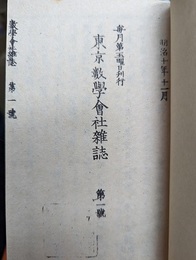 明治十年十一月
每月第一土曜日刊行
東京數學會社雜誌
第一號
數學會社雜誌
第一號